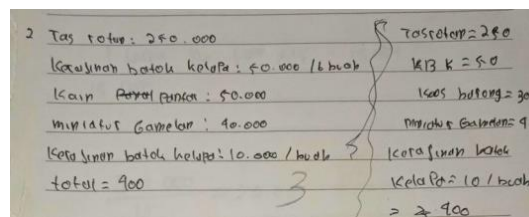 2 Tas rotan: 250.000
Kerajinan batok kelapa: 50.000 / 6 buah
Kain pantai: 50.000
miniatur Gamelan: 40.000
Kerajinan batok kelapa: 10.000 / buah
total = 400
3
Tas rotan = 250
KBK = 50
Kaos barong = 30
miniatur Gamelan = 4
Kerajinan batok
kelapa = 10 / buah
= 400